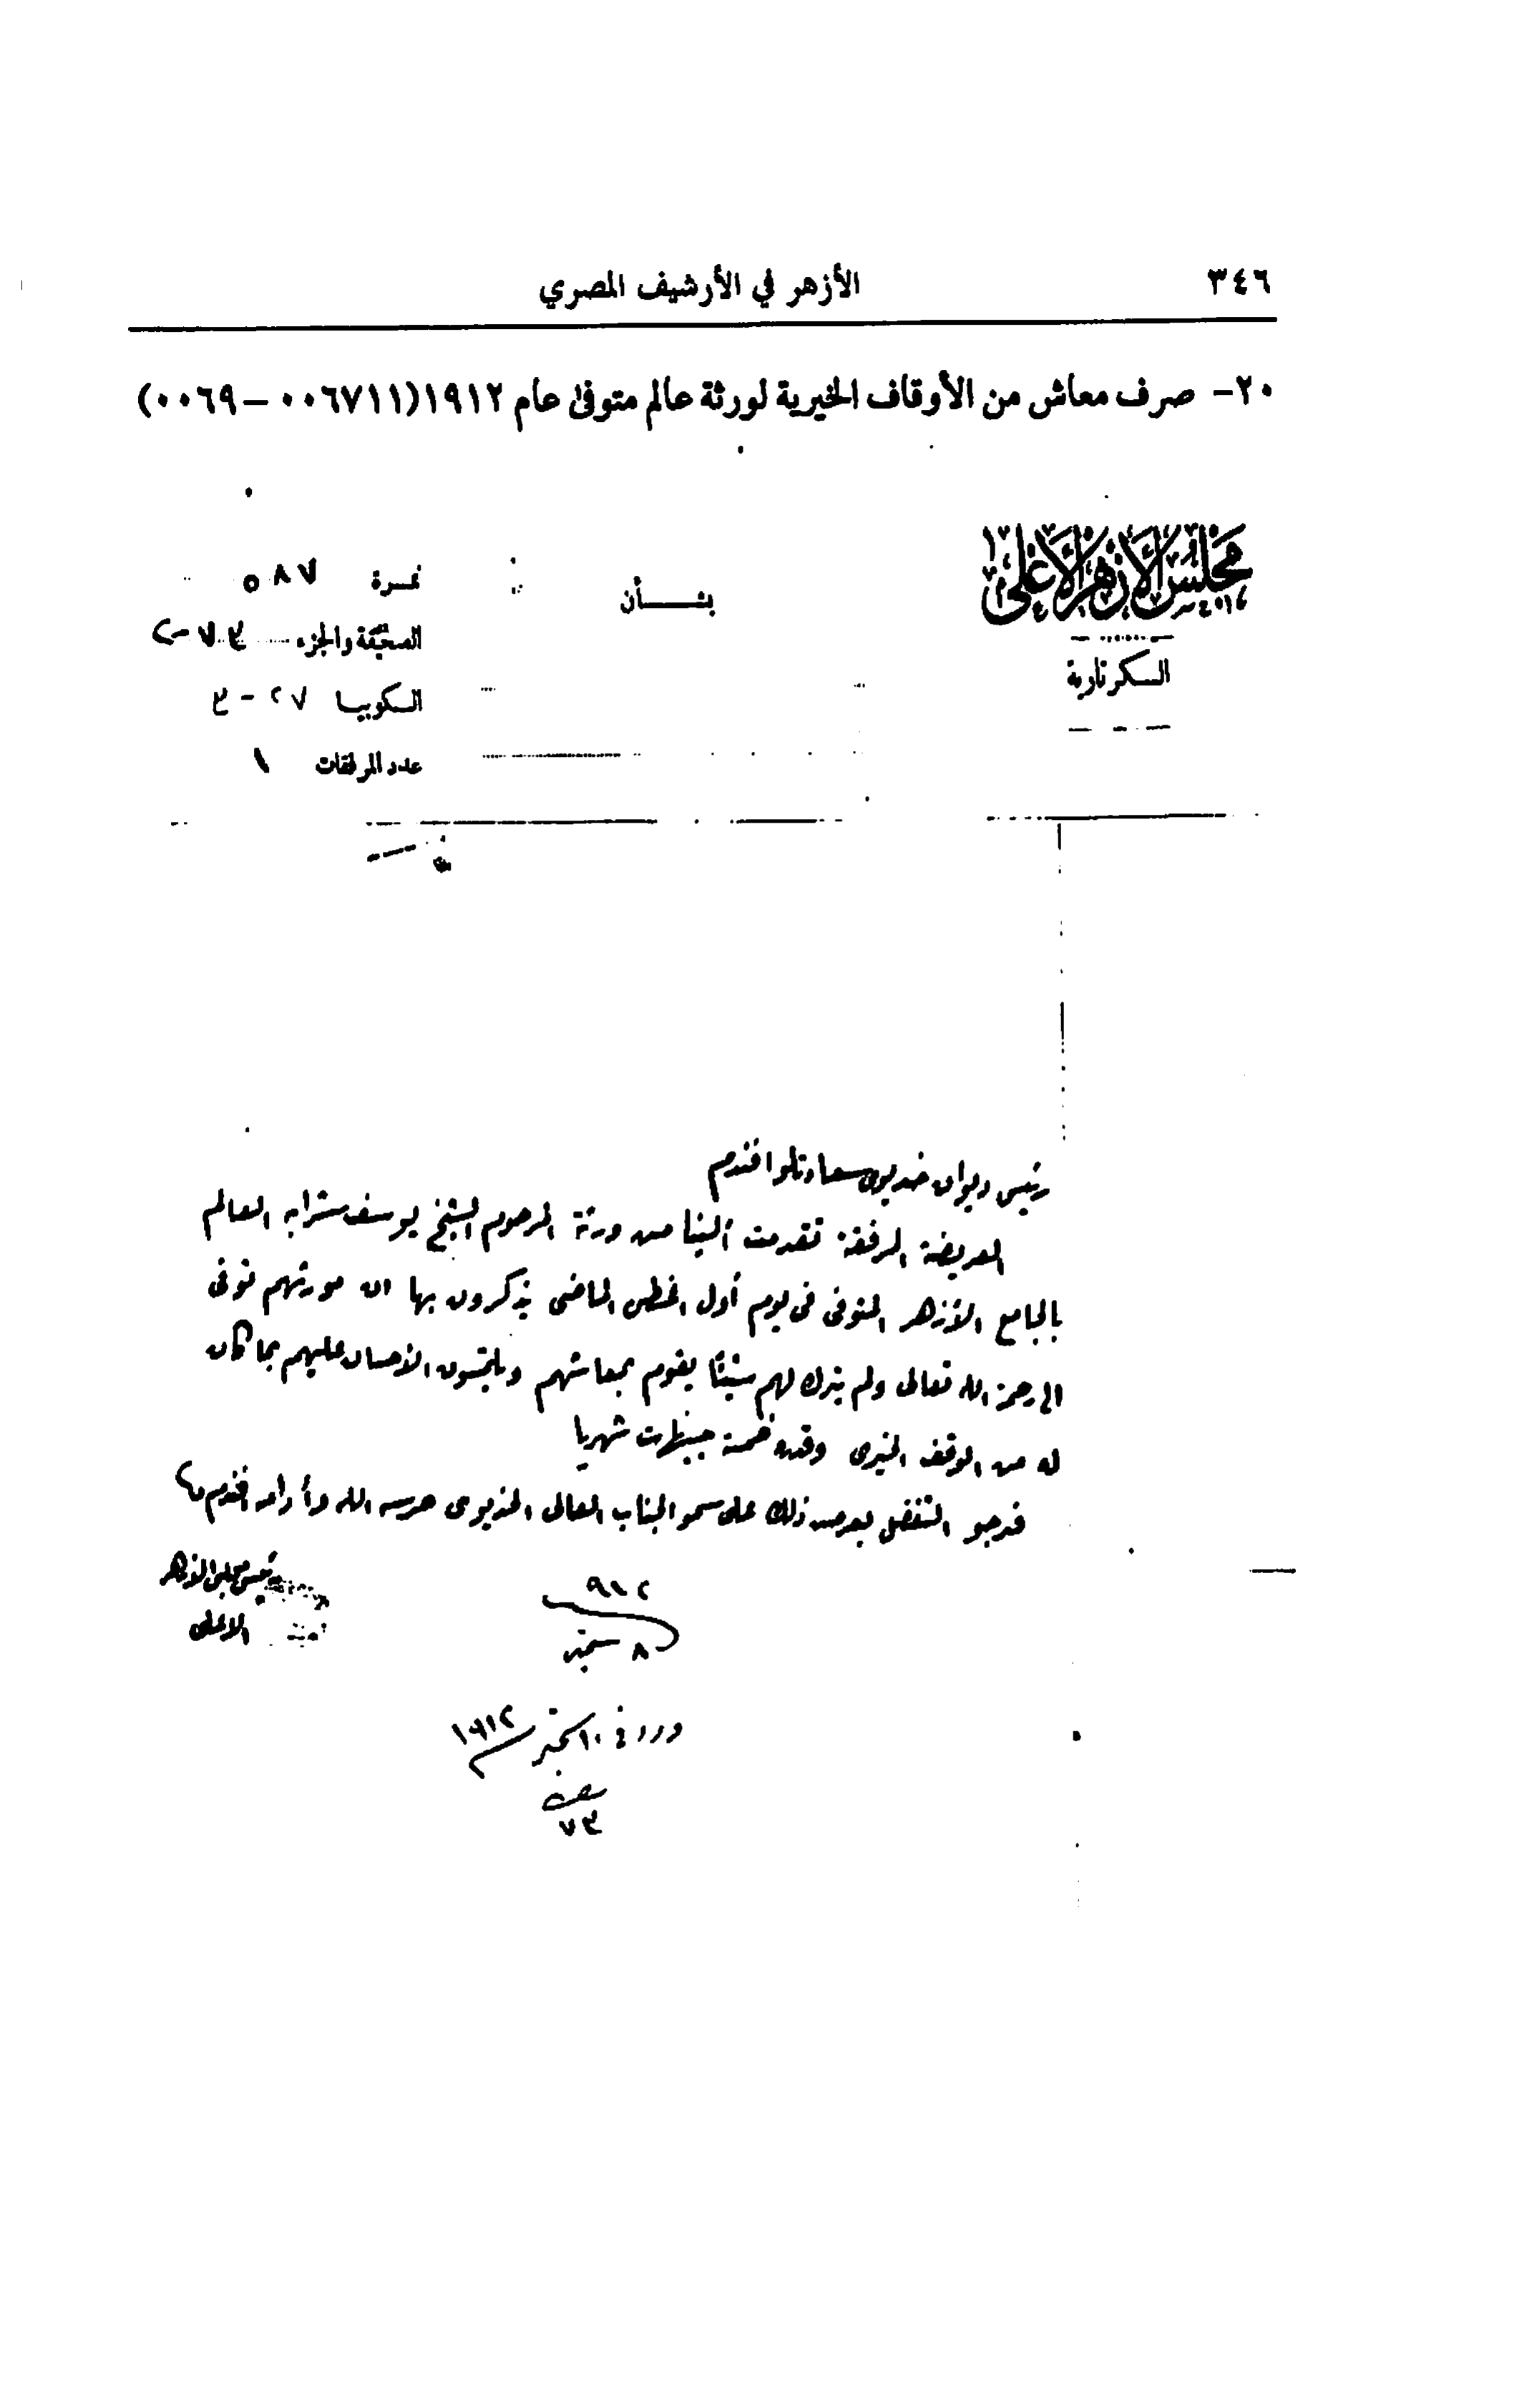 ٣٤٦
الأزهر في الأرشيف المصري
٢٠- صرف معاش من الأوقاف الخيرية لورثة عالم متوفى عام ١٩١٢(٠٠٦٧١١–٠٠٦٩)
مجلس الأزهر الأعلى
السكرتارية
بشأن
نمرة ٥٨٧
الصحيفة والجزء ٧٣-٢
السكوبيا ٢٧-٣
عدد المرفقات ١
رئيس ديوان خديوى سعادتلو افندم
العريضة المرفقة تقدمت إلينا من ورثة المرحوم الشيخ يوسف شرابه العالم
بالجامع الأزهر المتوفى فى يوم أول اغسطس الماضى يذكرون بها ان مورثهم توفى
الى رحمة الله تعالى ولم يترك لهم شيئًا يقوم بمعاشهم ويلتمسون الاحسان عليهم بما كان
له من الوقف الخيرى وقدره خمسة جنيهات شهريا
فنرجو التفضل بعرض ذلك على سمو الجناب العالى الخديوى حرسه الله وأدامه افندم
رئيس مجلس الازهر
الاعلى
٩١٢
٨ سبتمبر
ورد فى ١٠ سبتمبر ١٩١٢
٧٣